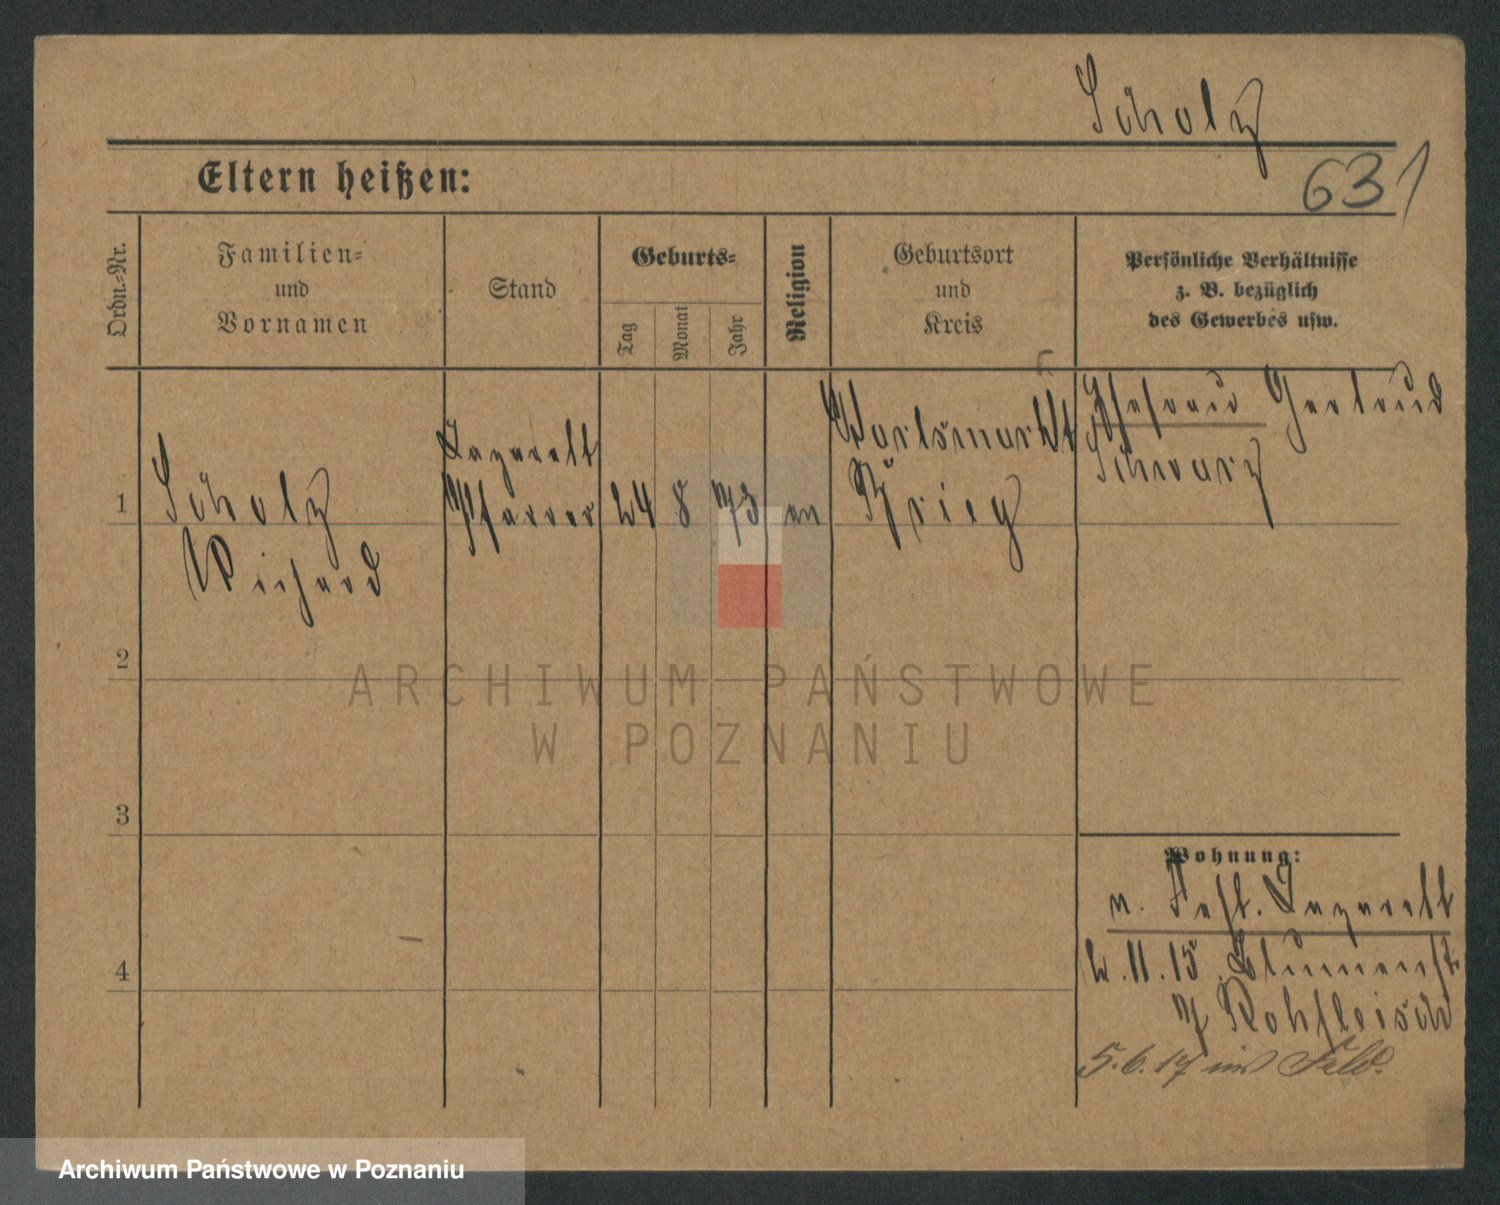 Scholz
Eltern heißen:
631
Ordn.-Nr.
Familien-
und
Vornamen
Stand
Geburts-
Tag
Monat
Jahr
Religion
Geburtsort
und
Kreis
Persönliche Verhältnisse
z. B. bezüglich
des Gewerbes usw.
1
Scholz
Richard
Lazarett
Pfarrer
24
8
73
ev
Brieg
Ehefrau Gertrud
Schwarz
2
3
4
ARCHIWUM PAŃSTWOWE
W POZNANIU
Wohnung:
n. Fest. Lazarett
2.11.15. Blumenst.
7 Rohfleisch
5.6.17 ins Feld.
Archiwum Państwowe w Poznaniu